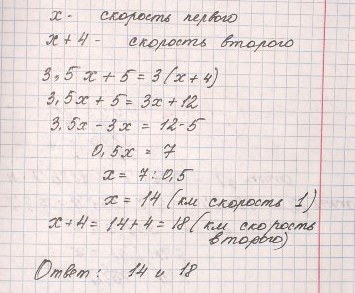 х - скорость первого
х + 4 - скорость второго
3,5 х + 5 = 3 (х + 4)
3,5х + 5 = 3х + 12
3,5х - 3х = 12 - 5
0,5х = 7
х = 7 : 0,5
х = 14 (км скорость 1)
х + 4 = 14 + 4 = 18 (км скорость
второго)
Ответ: 14 и 18